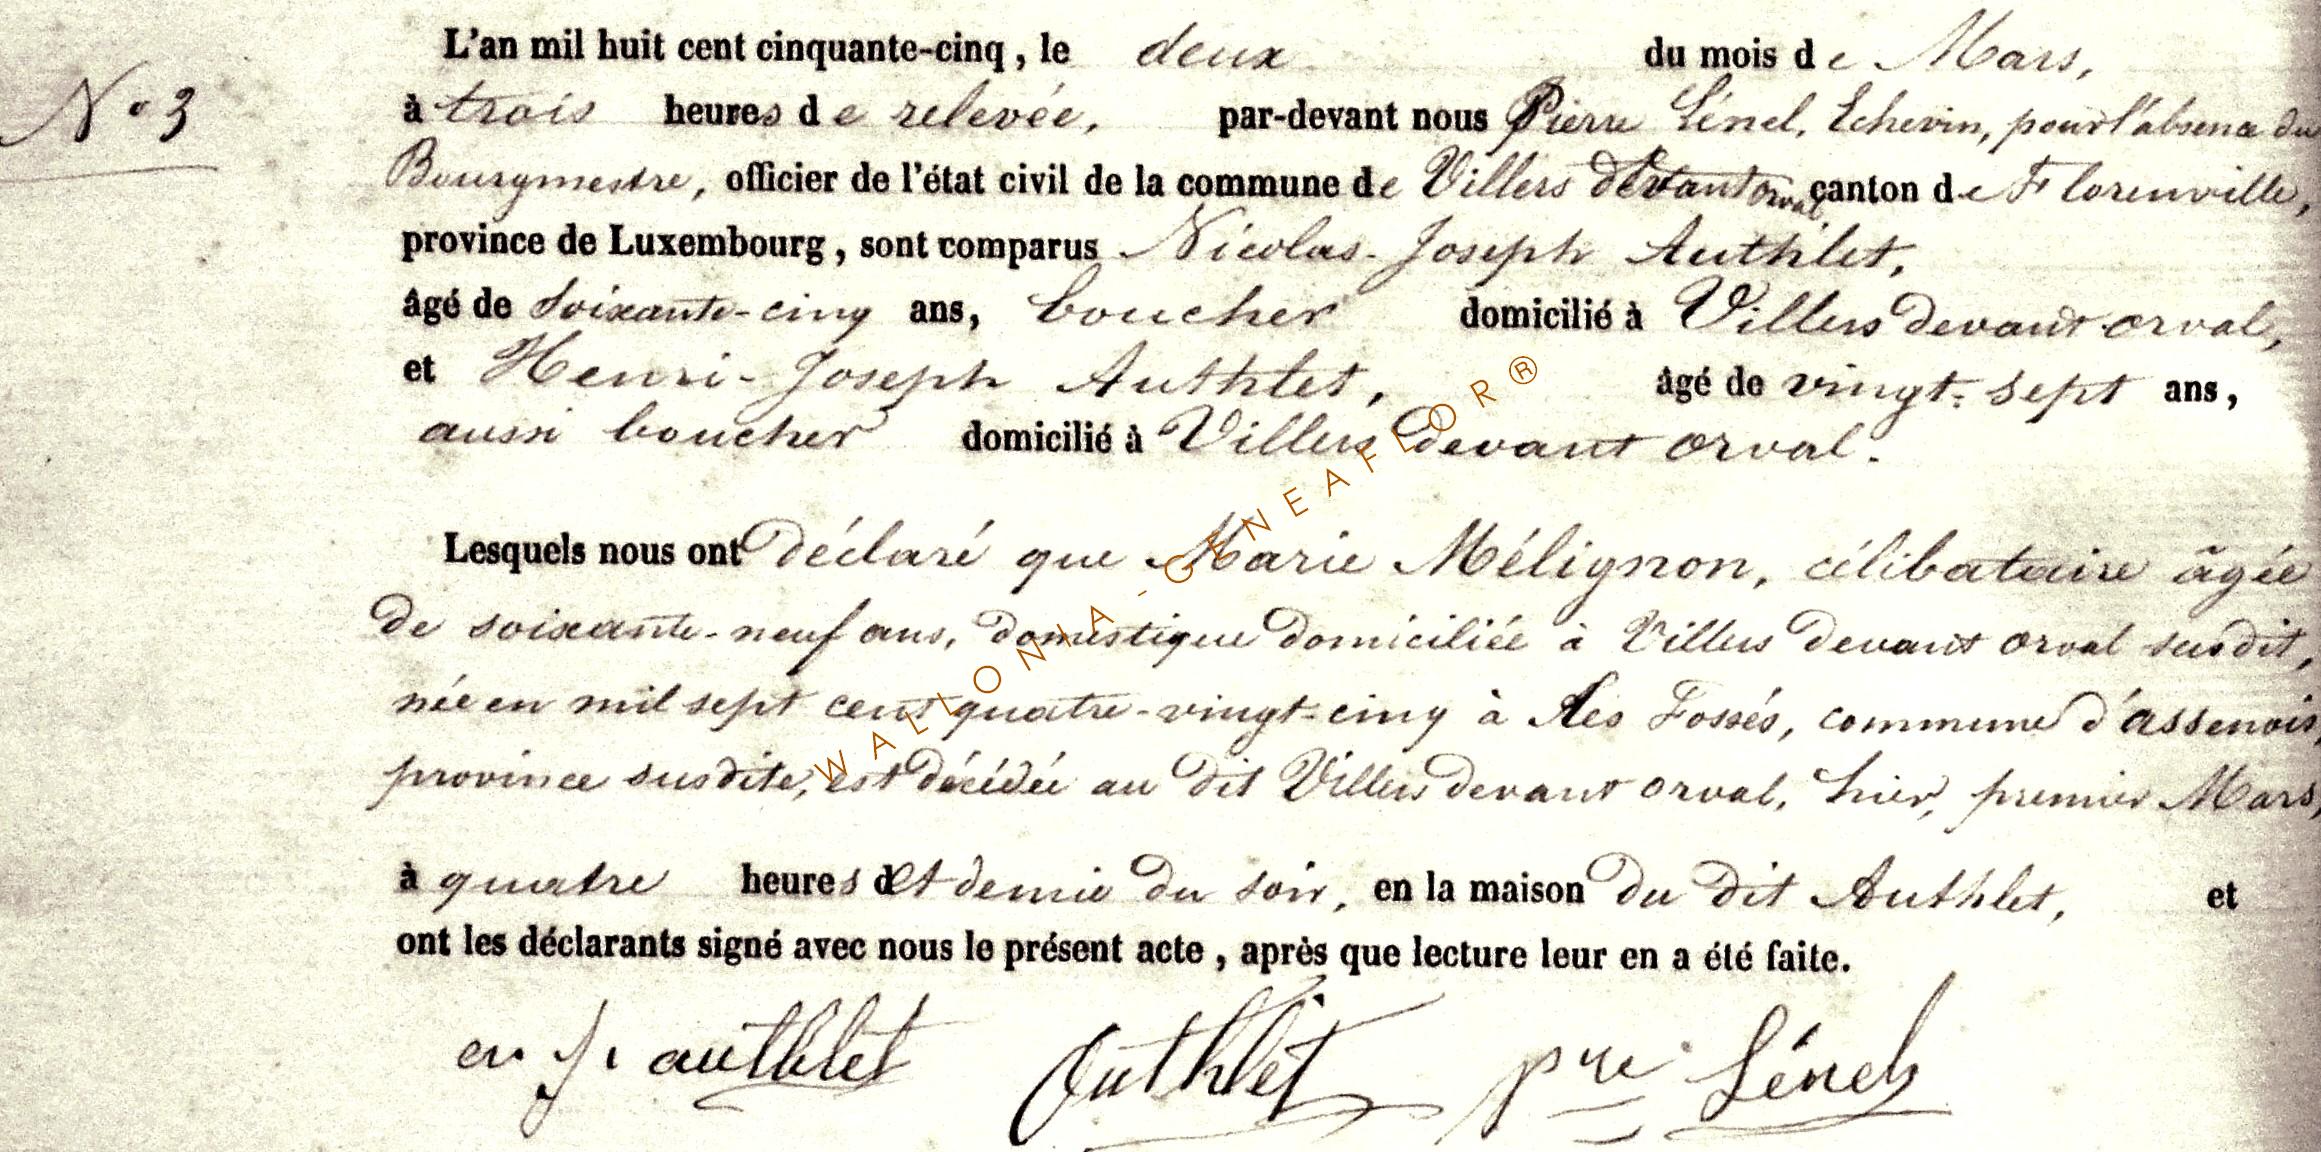 L'an mil huit cent cinquante-cinq, le deux du mois de Mars,
N° 3
à trois heures de relevée, par-devant nous Pierre Lénel, Echevin, pour l'absence du
Bourgmestre, officier de l'état civil de la commune de Villers devant orval, canton de Florenville,
province de Luxembourg, sont comparus Nicolas-Joseph Authlet,
âgé de soixante-cinq ans, boucher domicilié à Villers devant orval,
et Henri-Joseph Authlet, âgé de vingt-sept ans,
aussi boucher domicilié à Villers devant orval.
Lesquels nous ont déclaré que Marie Mélignon, célibataire âgée
de soixante-neuf ans, domestique domiciliée à Villers devant orval susdit,
née en mil sept cent quatre-vingt-cinq à Les Fossés, commune d'assenois,
province susdite, est décédée au dit Villers devant orval, hier, premier Mars,
à quatre heures et demie du soir, en la maison du dit Authlet, et
ont les déclarants signé avec nous le présent acte, après que lecture leur en a été faite.
authlet Authlet pre Lénel
WALLONIA-GENEAFLOR®